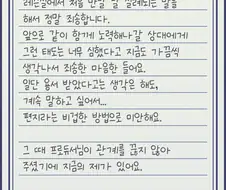 레슨실에서 처음 만날 날 실례되는 말을
해서 정말 죄송합니다.
앞으로 같이 함께 노력해나갈 상대에게
그런 태도는 너무 심했다고 지금도 가끔씩
생각나서 죄송한 마음만 들어요.
일단 용서 받았다고는 생각은 해도,
계속 말하고 싶어서...
편지라는 비겁한 방법으로 미안해요.
그 때 프로듀서님이 관계를 끊지 않아
주셨기에 지금의 제가 있어요.